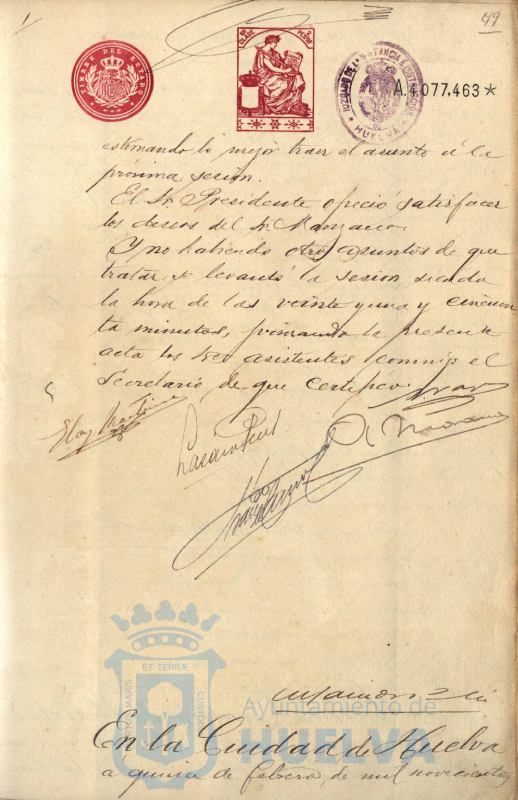 49
TIMBRE DEL ESTADO
JUZGADO DE 1ª INSTANCIA E INSTRUCCION
HUELVA
A.4.077.463*
estimando lo mejor traer el asunto á la
próxima sesión.
El Sr. Presidente ofreció satisfacer
los deseos del Sr.
Y no habiendo otros asuntos de que
tratar se levantó la sesion siendo
la hora de las veinte y una y cincuen
ta minutos, firmando la presente
acta los Sres asistentes conmigo el
Secretario de que certifico.
ET TERRÆ
MARIS
CUSTODIA
Ayuntamiento de
HUELVA
En la Ciudad de Huelva
a quince de febrero de mil novecientos